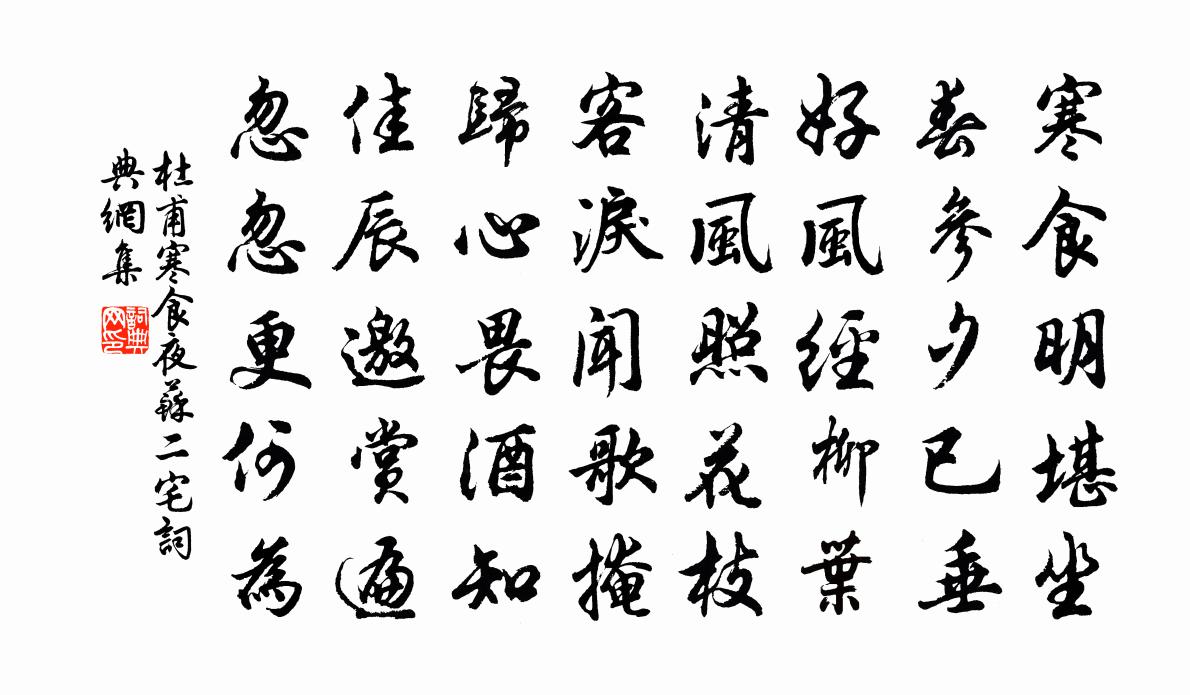 寒食明堪坐
春參夕已垂
好風經柳葉
清風照花枝
客淚聞歌掩
歸心畏酒知
佳辰邀賞遍
忽忽更何為
杜甫寒食夜蘇二宅詞
典網集
詞典
网印